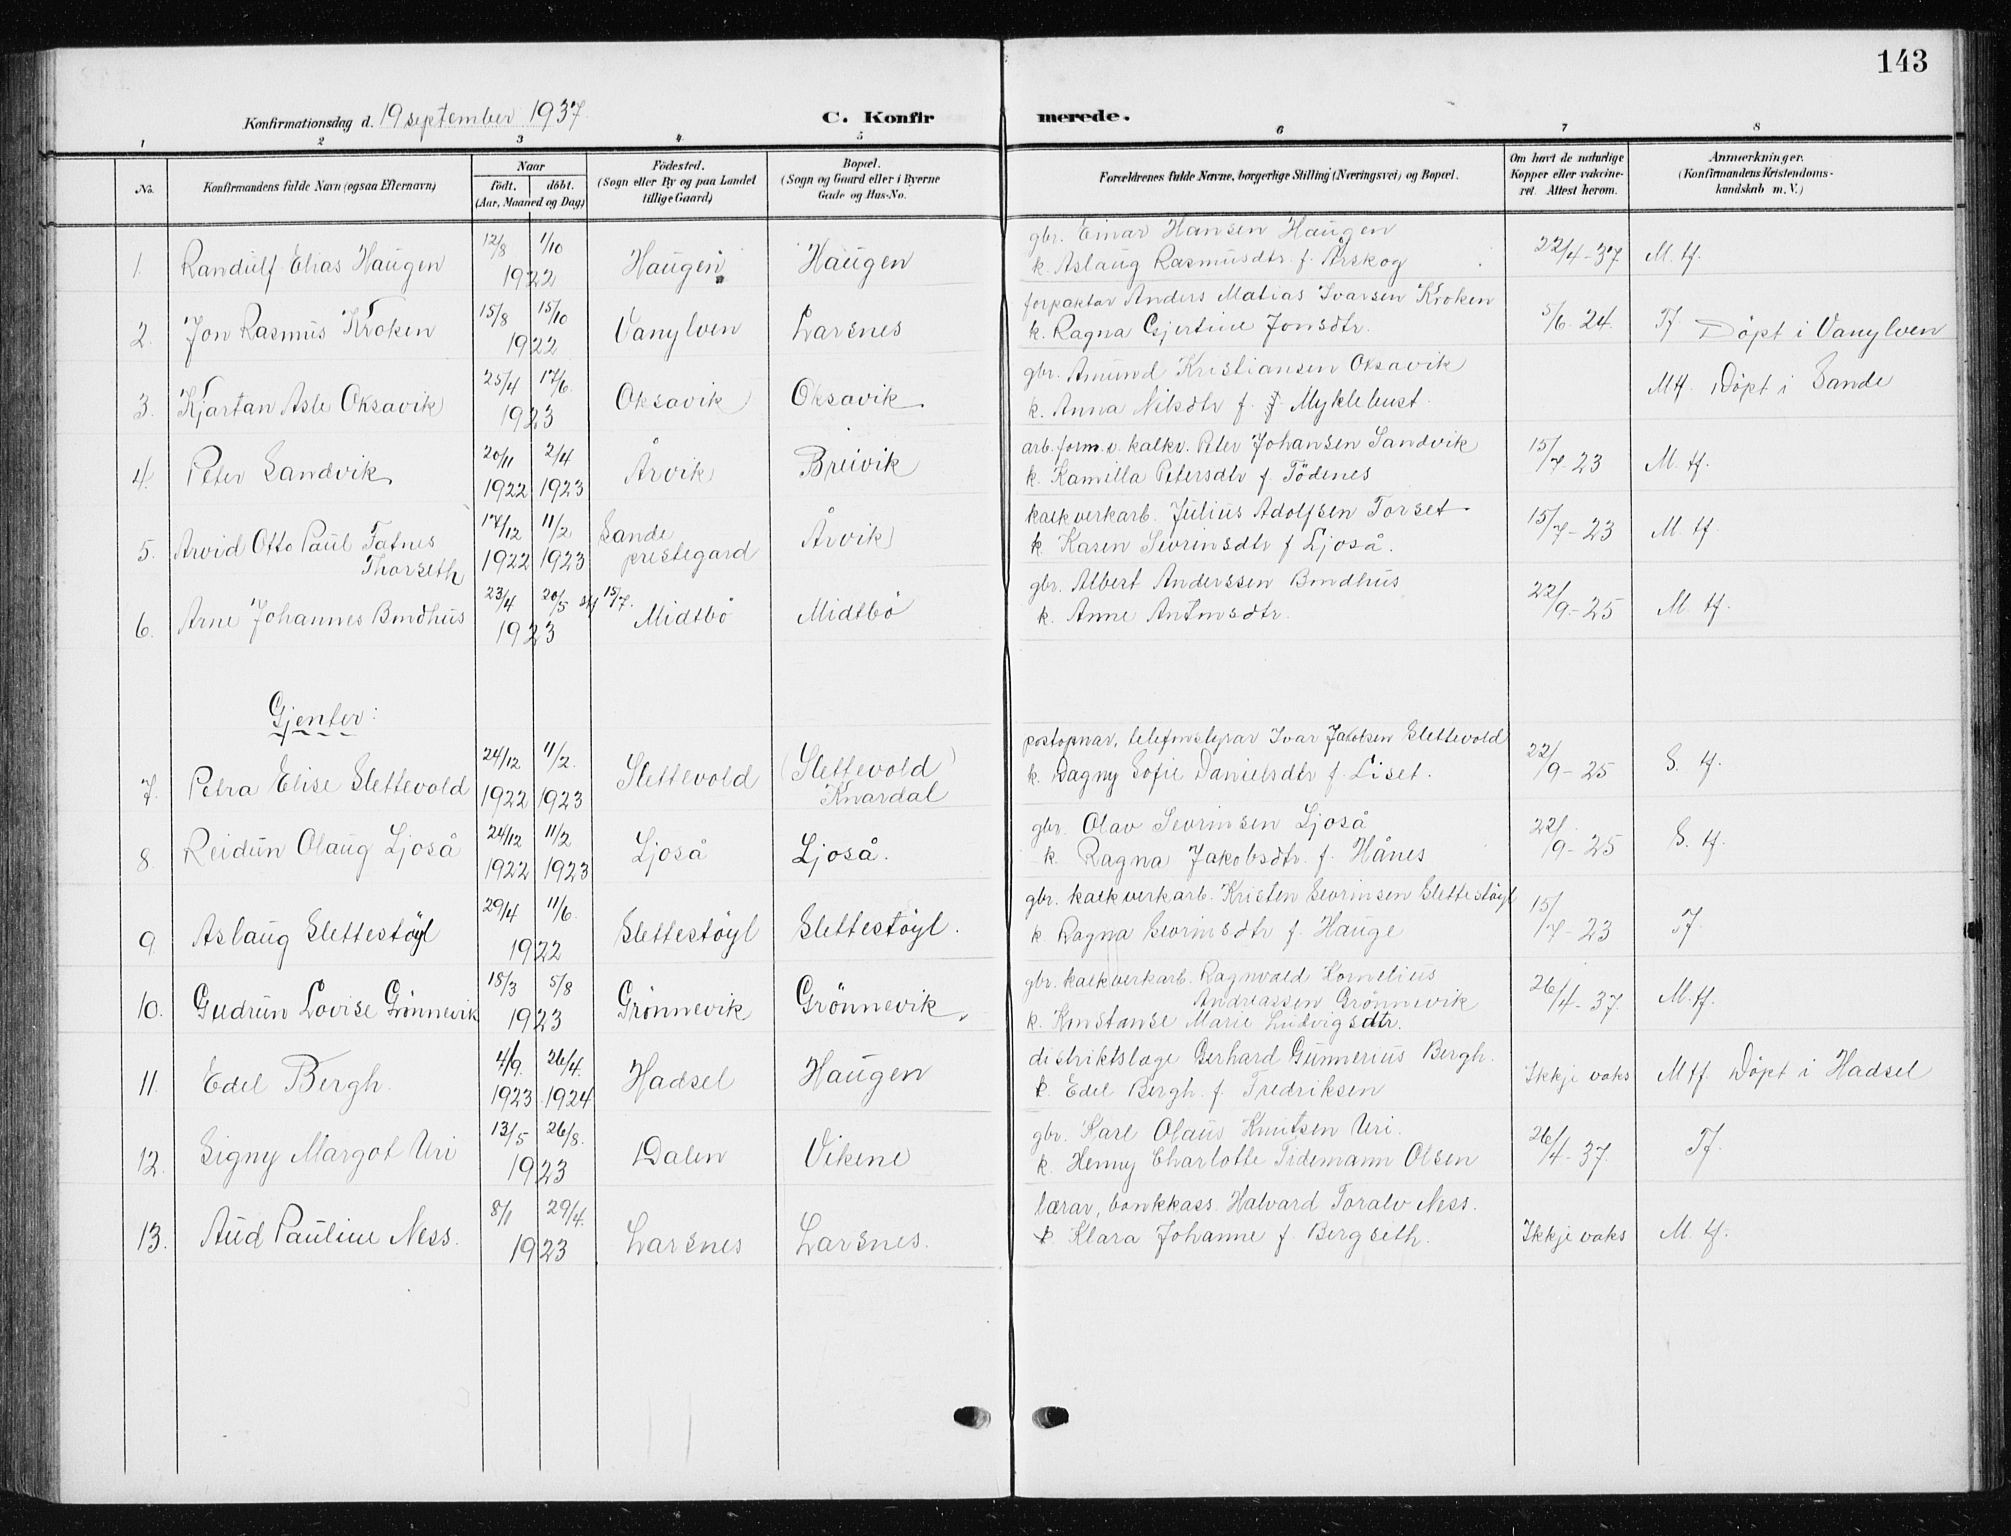 143
Konfirmationsdag d. 19 september 1937.
C. Konfirmerede.
1 2 3 4 5 6 7 8
No.
Konfirmandens fulde Navn (ogsaa Efternavn)
Naar
født. døbt.
(Aar, Maaned og Dag)
Fødested.
(Sogn eller By og paa Landet
tillige Gaard)
Bopæl.
(Sogn og Gaard eller i Byerne
Gade og Hus-No.
Forældrenes fulde Navne, borgerlige Stilling (Næringsvei) og Bopæl.
Om havt de naturlige
Kopper eller vakcine-
ret. Attest herom.
Anmærkninger.
(Konfirmandens Kristendoms-
kundskab m. V.)
12/8 1/10 gbr. Einar Hansen Haugen
1. Randulf Elias Haugen 1922 Haugen Haugen k. Aslaug Rasmusdtr. f. Årskog 22/4-37 M. tf.
15/8 15/10 forpaktar Anders Matias Ivarsen Kroken
2. Jon Rasmus Kroken 1922 Vanylven Larsnes k. Ragna Gjertine Jonsdtr. 5/6-24. Tf. Döpt i Vanylven
25/4 17/6. gbr. Amund Kristiansen Oksavik
3. Kjartan Asle Oksavik 1923 Oksavik Oksavik k. Anna Nilsdtr f. Myklebust. Mtf. Döpt i Sande
20/11 2/4 arb.form. v. kalkv. Peter Johansen Sandvik
4. Peter Sandvik 1922 1923 Årvik Breivik k. Kamilla Petersdtr f. Tödenes 15/7-23 M. tf.
17/12 11/2 Sande kalkverkarb. Julius Adolfsen Torset
5. Arvid Otto Paul Tafnes 1922 1923 prestegard Årvik k Karen Sevrinsdtr f Ljoså. 15/7-23 M. tf.
Thorseth
23/4 20/5 st/ 15/7. gbr. Albert Anderssen Bondhus
6. Arne Johannes Bondhus 1923 Midtbö Midtbö k. Anne Antonsdtr. 22/9-25 M. tf.
Gjenter:
24/12 11/2. postopnar, telefonstyrar Ivar Jakobsen Slettevold
7. Petra Elise Slettevold 1922 1923 Slettevold (Slettevold) k. Dagny Sofie Danielsdtr f. Liset. 22/9-25 S. tf.
Knardal
24/12 11/2 gbr. Olav Sevrinsen Ljoså
8. Reidun Olaug Ljoså 1922 1923 Ljoså Ljoså. k. Ragna Jakobsdtr. f. Hånes 22/9-25 S. tf.
29/4 11/6. gbr. kalkverkarb. Kristen Sevrinsen Slettestöyl
9. Aslaug Slettestöyl 1922 Slettestöyl Slettestöyl. k Ragna Sevrinsdtr f. Hauge 15/7-23 Tf.
18/3 5/8 gbr. kalkverkarb. Ragnvald Kornelius
Andreassen Grönnevik
10. Gudrun Lovise Grönnevik 1923 Grönnevik Grönnevik. k. Konstanse Marie Ludvigsdtr. 26/4-37. M. tf.
4/9. 26/4. distriktslæge Gerhard Gunnerius Bergh.
11. Edel Bergh. 1923 1924 Hadsel Haugen k Edel Bergh f. Fredriksen Ikkje vaks M tf. Döpt i Hadsel
13/5 26/8. gbr. Karl Olaus Knutsen Uri.
12. Signy Margot Uri 1923 Dalen Vikene k. Henny Charlotte Tidemann Olsen 26/4-37. Tf.
8/1 29/4. lærar, bankkass. Halvard Toralv Ness.
13. Aud Pauline Ness. 1923 Larsnes Larsnes. k. Klara Johanne f. Bergseth. Ikkje vaks M. tf.